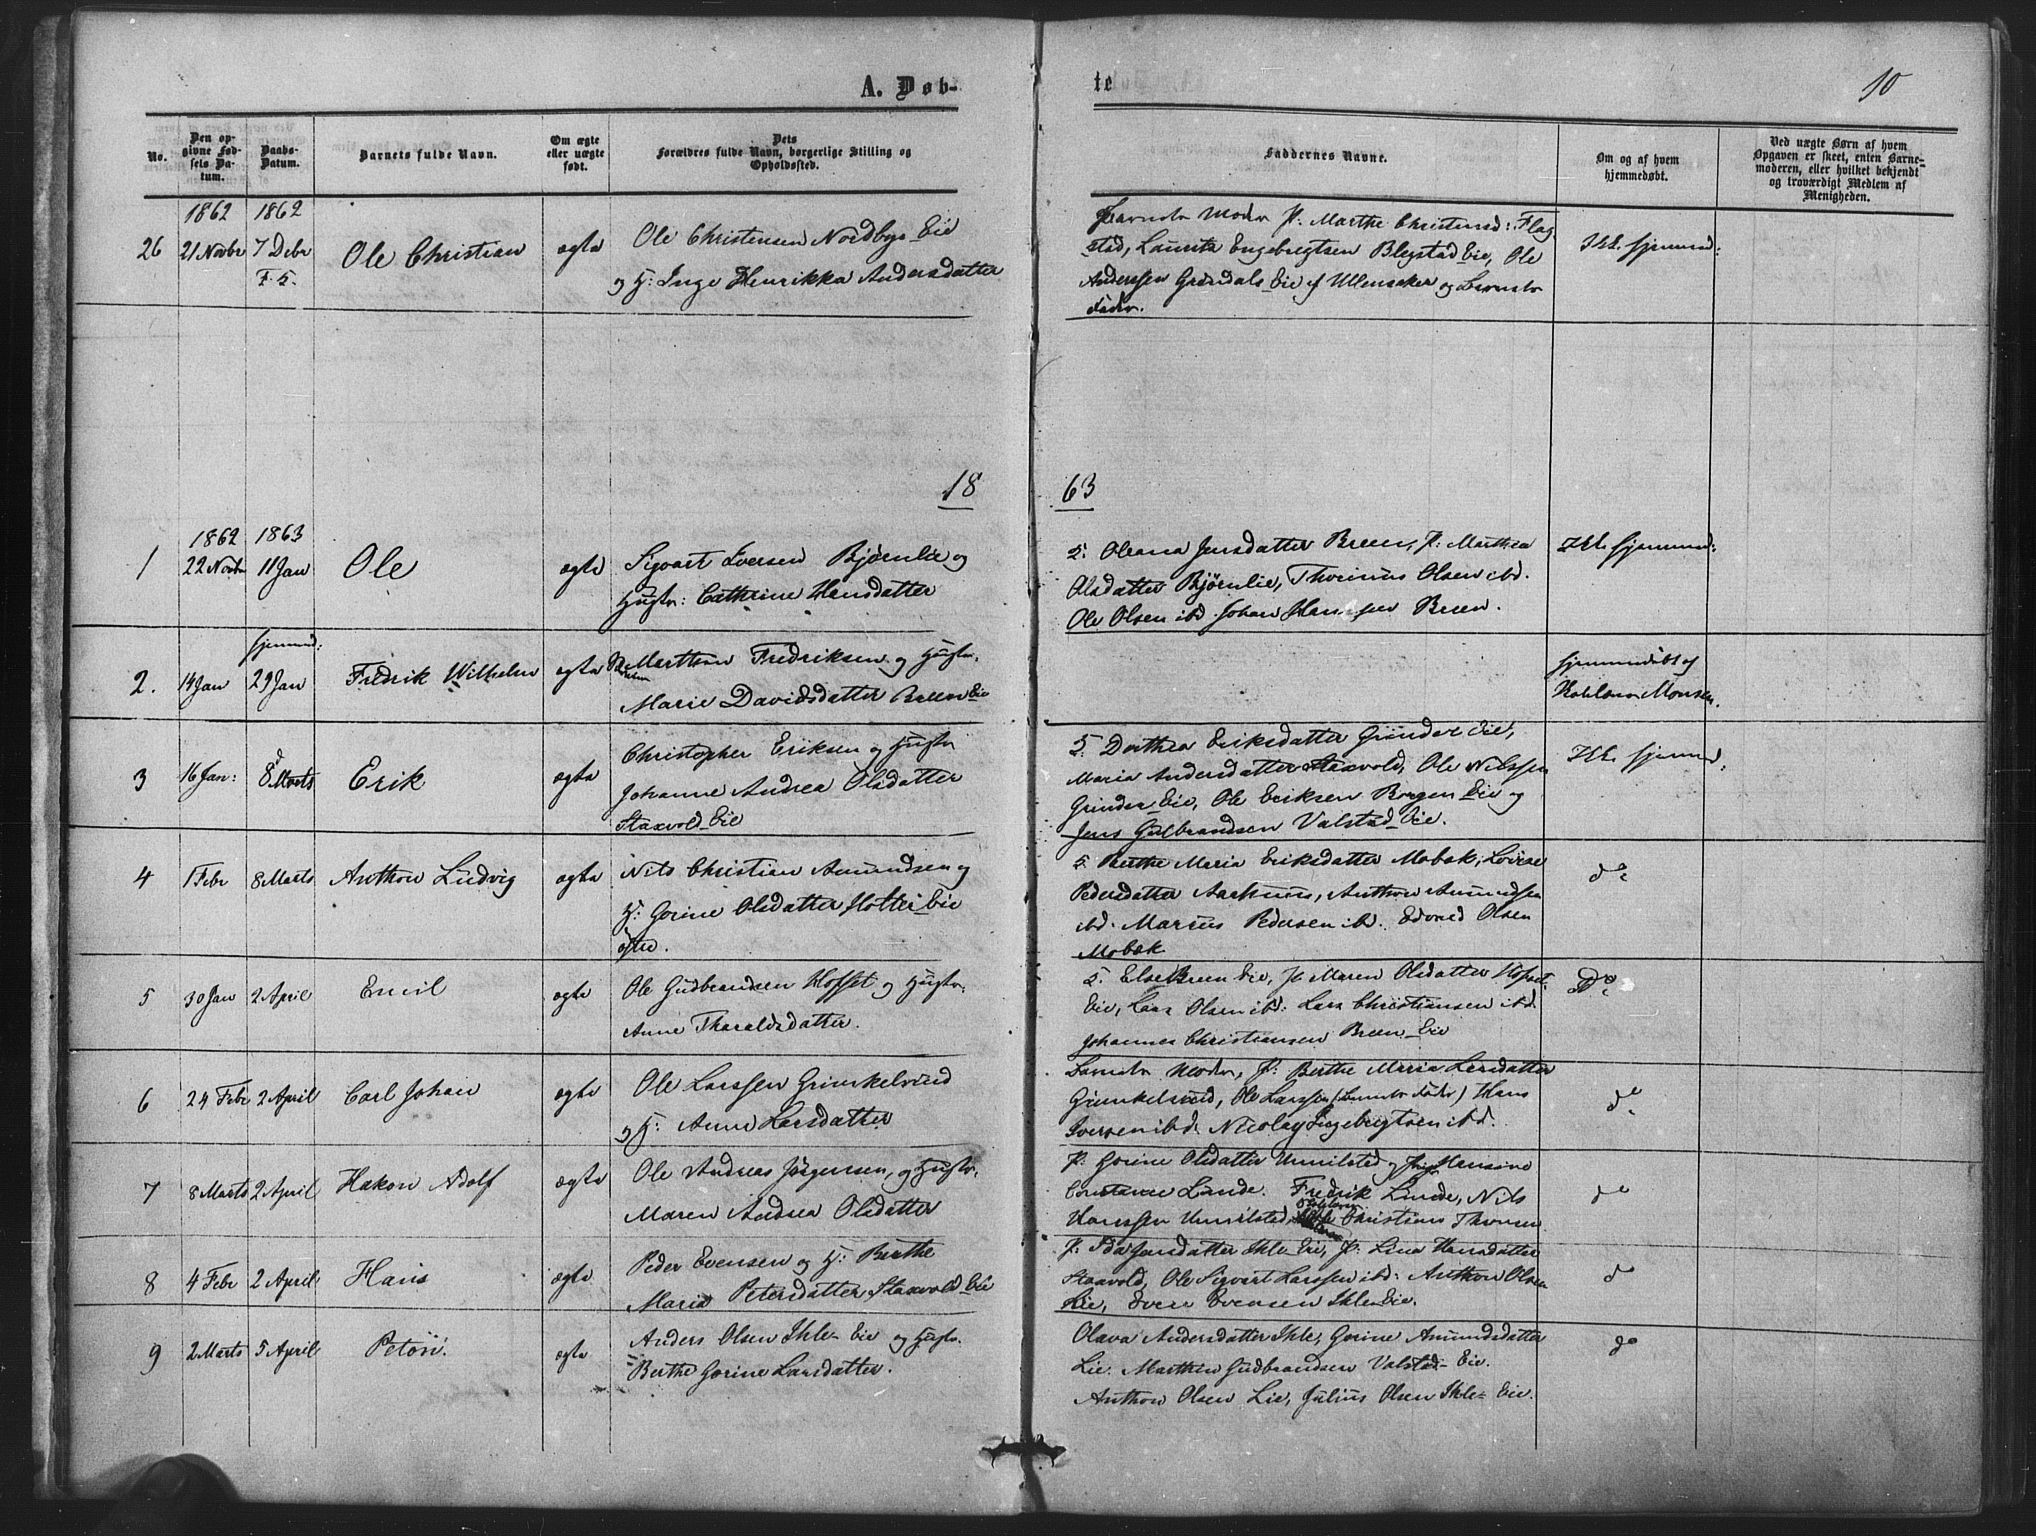 A. Døb-
te
10
No.
Den op-
givne Fød-
sels Da-
tum.
Daabs-
Datum.
Barnets fulde Navn.
Om ægte
eller uægte
født.
Dets
Forældres fulde Navn, borgerlige Stilling og
Opholdssted.
Faddernes Navne.
Om og af hvem
hjemmedøbt.
Ved uægte Børn af hvem
Opgaven er skeet, enten Barne-
moderen, eller hvilket bekjendt
og troværdigt Medlem af
Menigheden.
1862 1862
26 21 Novbr 7 Debr Ole Christian ægte
Ole Christensen Nordbye Eie
og H: Inge Henrikka Andersdatter
Barnets Moder P: Marthe Christensd: Flag
stad, Laurits Engebrigtsen Blegstad Eie, Ole
Anderssen Grøndals Eie af Ullensaker og Barnets
Fader.
Ikke hjemmed:
18
63
1862 1863
1 22 Novbr 11 Jan Ole ægte
Sigvart Iversen Bjørnlie og
Hustr: Cathrine Hansdatter
Oleana Jensdatter Breen, P: Marthea
Olsdatter Bjørnlie, Thorinus Olsen ibd.
Ole Olsen ibd. Johan Hanssen Breen.
Ikke hjemmed:
hjemmed:
2. 14 Jan 29 Jan Fredrik Wilhelm ægte
Marthin Fredriksen og Hustr.
Marie Davidsdatter Breen Eie
hjemmedøbt af
Monsen.
3 16 Jan: 8 Marts Erik ægte
Christopher Eriksen og Hustr
Johanne Andrea Olsdatter
Staxvold Eie
Dorthea Eriksdatter Grinder Eie,
Maria Andersdatter Staxvold, Ole Nilssen
Grinder Eie, Ole Eriksen Borgen Eie og
Jens Gulbrandsen Valstad Eie.
Ikke hjemmed:
4 1 Febr 8 Marts Anthon Ludvig ægte
Nils Christian Amundsen og
H: Gorine Olsdatter Eie
Berthe Maria Eriksdatter Mobæk, Lovise
Pedersdatter Aarhuus, Anthon Amundsen
ibd. Marius Pedersen ibd. Edvard Olsen
Mobæk
do
5 30 Jan 2 April Emil ægte
Ole Gudbrandsen Hofset og Hustr.
Anne Tharaldsdatter.
Else Breen Eie, P: Maren Olsdatter Hofset
Eie, Lars Olsen ibd. Lars Christiansen ibd.
Johannes Christiansen Breen Eie
do
6 24 Febr 2 April Carl Johan ægte
Ole Larssen Grimkelsrud
og H: Anne Larsdatter
Barnets Moder, P: Berthe Maria Larsdatter
Grimkelsrud, Ole Larssen (Barnets Fader) Hans
Iversen ibd. Nicolay Engebrigtsen ibd.
do
7 8 Marts 2 April Hakon Adolf ægte
Ole Andreas Jørgensen, og Hustr.
Maren Andrea Olsdatter
P. Gorine Olsdatter Hansine
Constance Lunde. Fredrik Lunde, Nils
Hanssen Christians Thomsen
do
8 4 Febr 2 April Hans ægte
Peder Evensen og H: Berthe
Maria Petersdatter Staxvold Eie
P: Ida Jensdatter Ihle Eie, P: Lina Hansdatter
Staxvold, Ole Sigvart Larssen ibd. Anthon Olsen
Lie, Even Evensen Ihle Eie.
do
9 2 Marts 5 April ægte
Anders Olsen Ihle Eie og Hustr.
Berthe Gorine Larsdatter.
Olava Andersdatter Ihle, Gorine Amundsdatter
Lie. Marthin Gudbrandsen Valstad Eie.
Anthon Olsen Lie, Julius Olsen Ihle Eie.
do